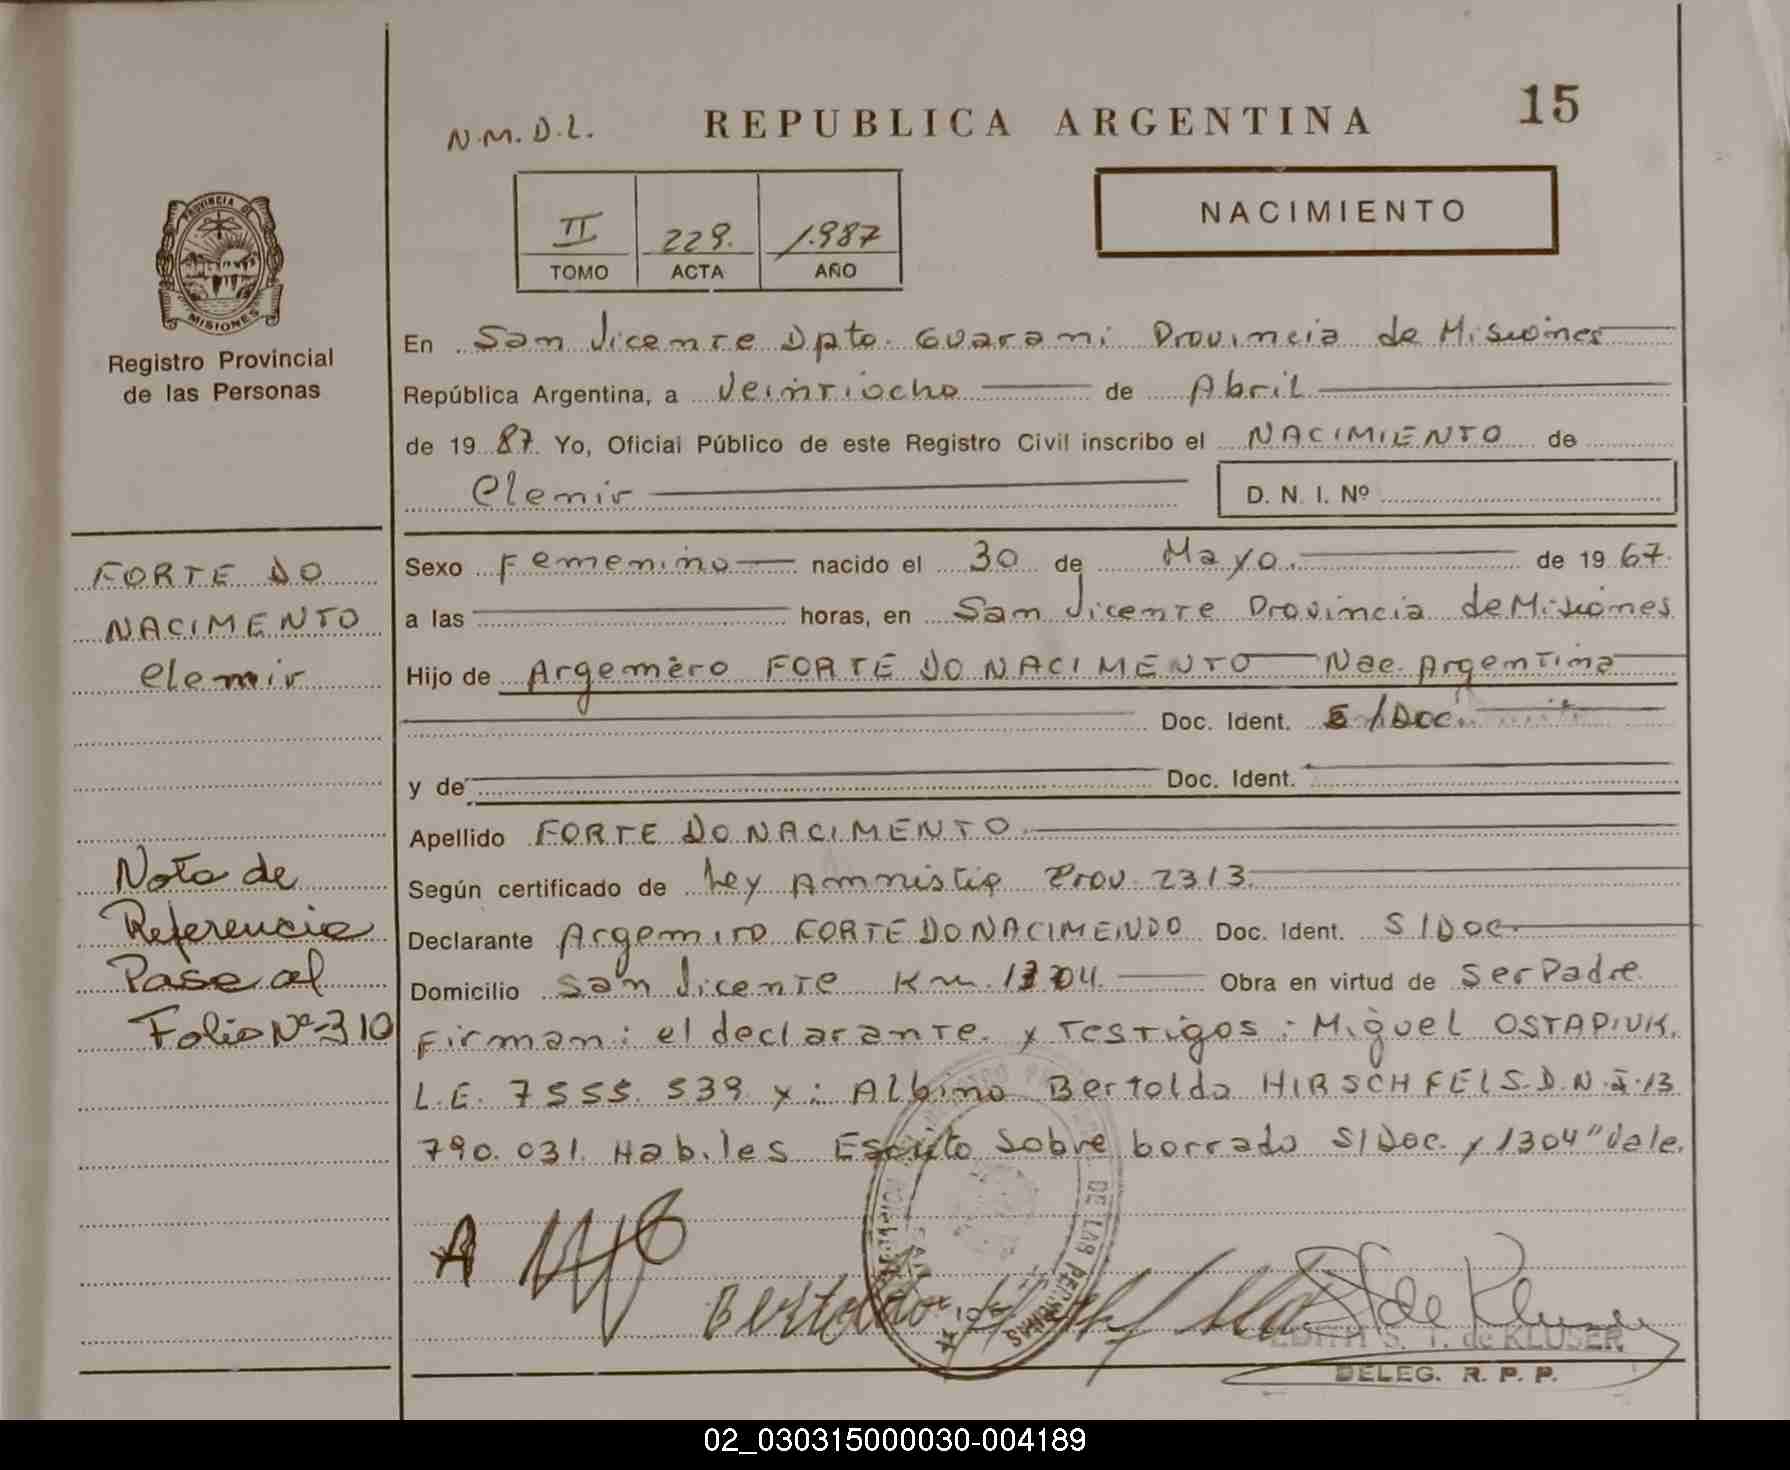 N.M.D.L.
REPUBLICA ARGENTINA
15
II
229.
1.987
TOMO
ACTA
AÑO
NACIMIENTO
PROVINCIA DE
MISIONES
Registro Provincial
de las Personas
En San Vicente Dpto. Guarani Provincia de Misiones
República Argentina, a Veintiocho de Abril
de 19 87. Yo, Oficial Público de este Registro Civil inscribo el NACIMIENTO de
Clemir
D. N. I. Nº
FORTE DO
NACIMENTO
Clemir
Sexo Femenino nacido el 30 de Mayo. de 19 67.
a las horas, en San Vicente Provincia de Misiones
Hijo de Argemero FORTE DO NACIMENTO Nac. Argentina
Doc. Ident. S/Doc.
y de Doc. Ident.
Apellido FORTE DO NACIMENTO.
Según certificado de Ley Amnistia Prov. 2313.
Declarante Argemiro FORTE DO NACIMENDO Doc. Ident. S/Doc.
Domicilio San Vicente Km. 1304. Obra en virtud de Ser Padre
Firman: el declarante. y Testigos: Miguel OSTAPIUK.
L.E. 7555.539. y: Albino Bertoldo HIRSCHFELS. D.N.I. 13
790.031. Habiles Escrito Sobre borrado S/Doc. y 1304" Vale.
Nota de
Referencia
Pase al
Folio Nº 310
A
Bertoldo
DE LAS PERSONAS
MISIONES
EDITH S. T. de KLUSER
DELEG. R. P. P.
02_030315000030-004189